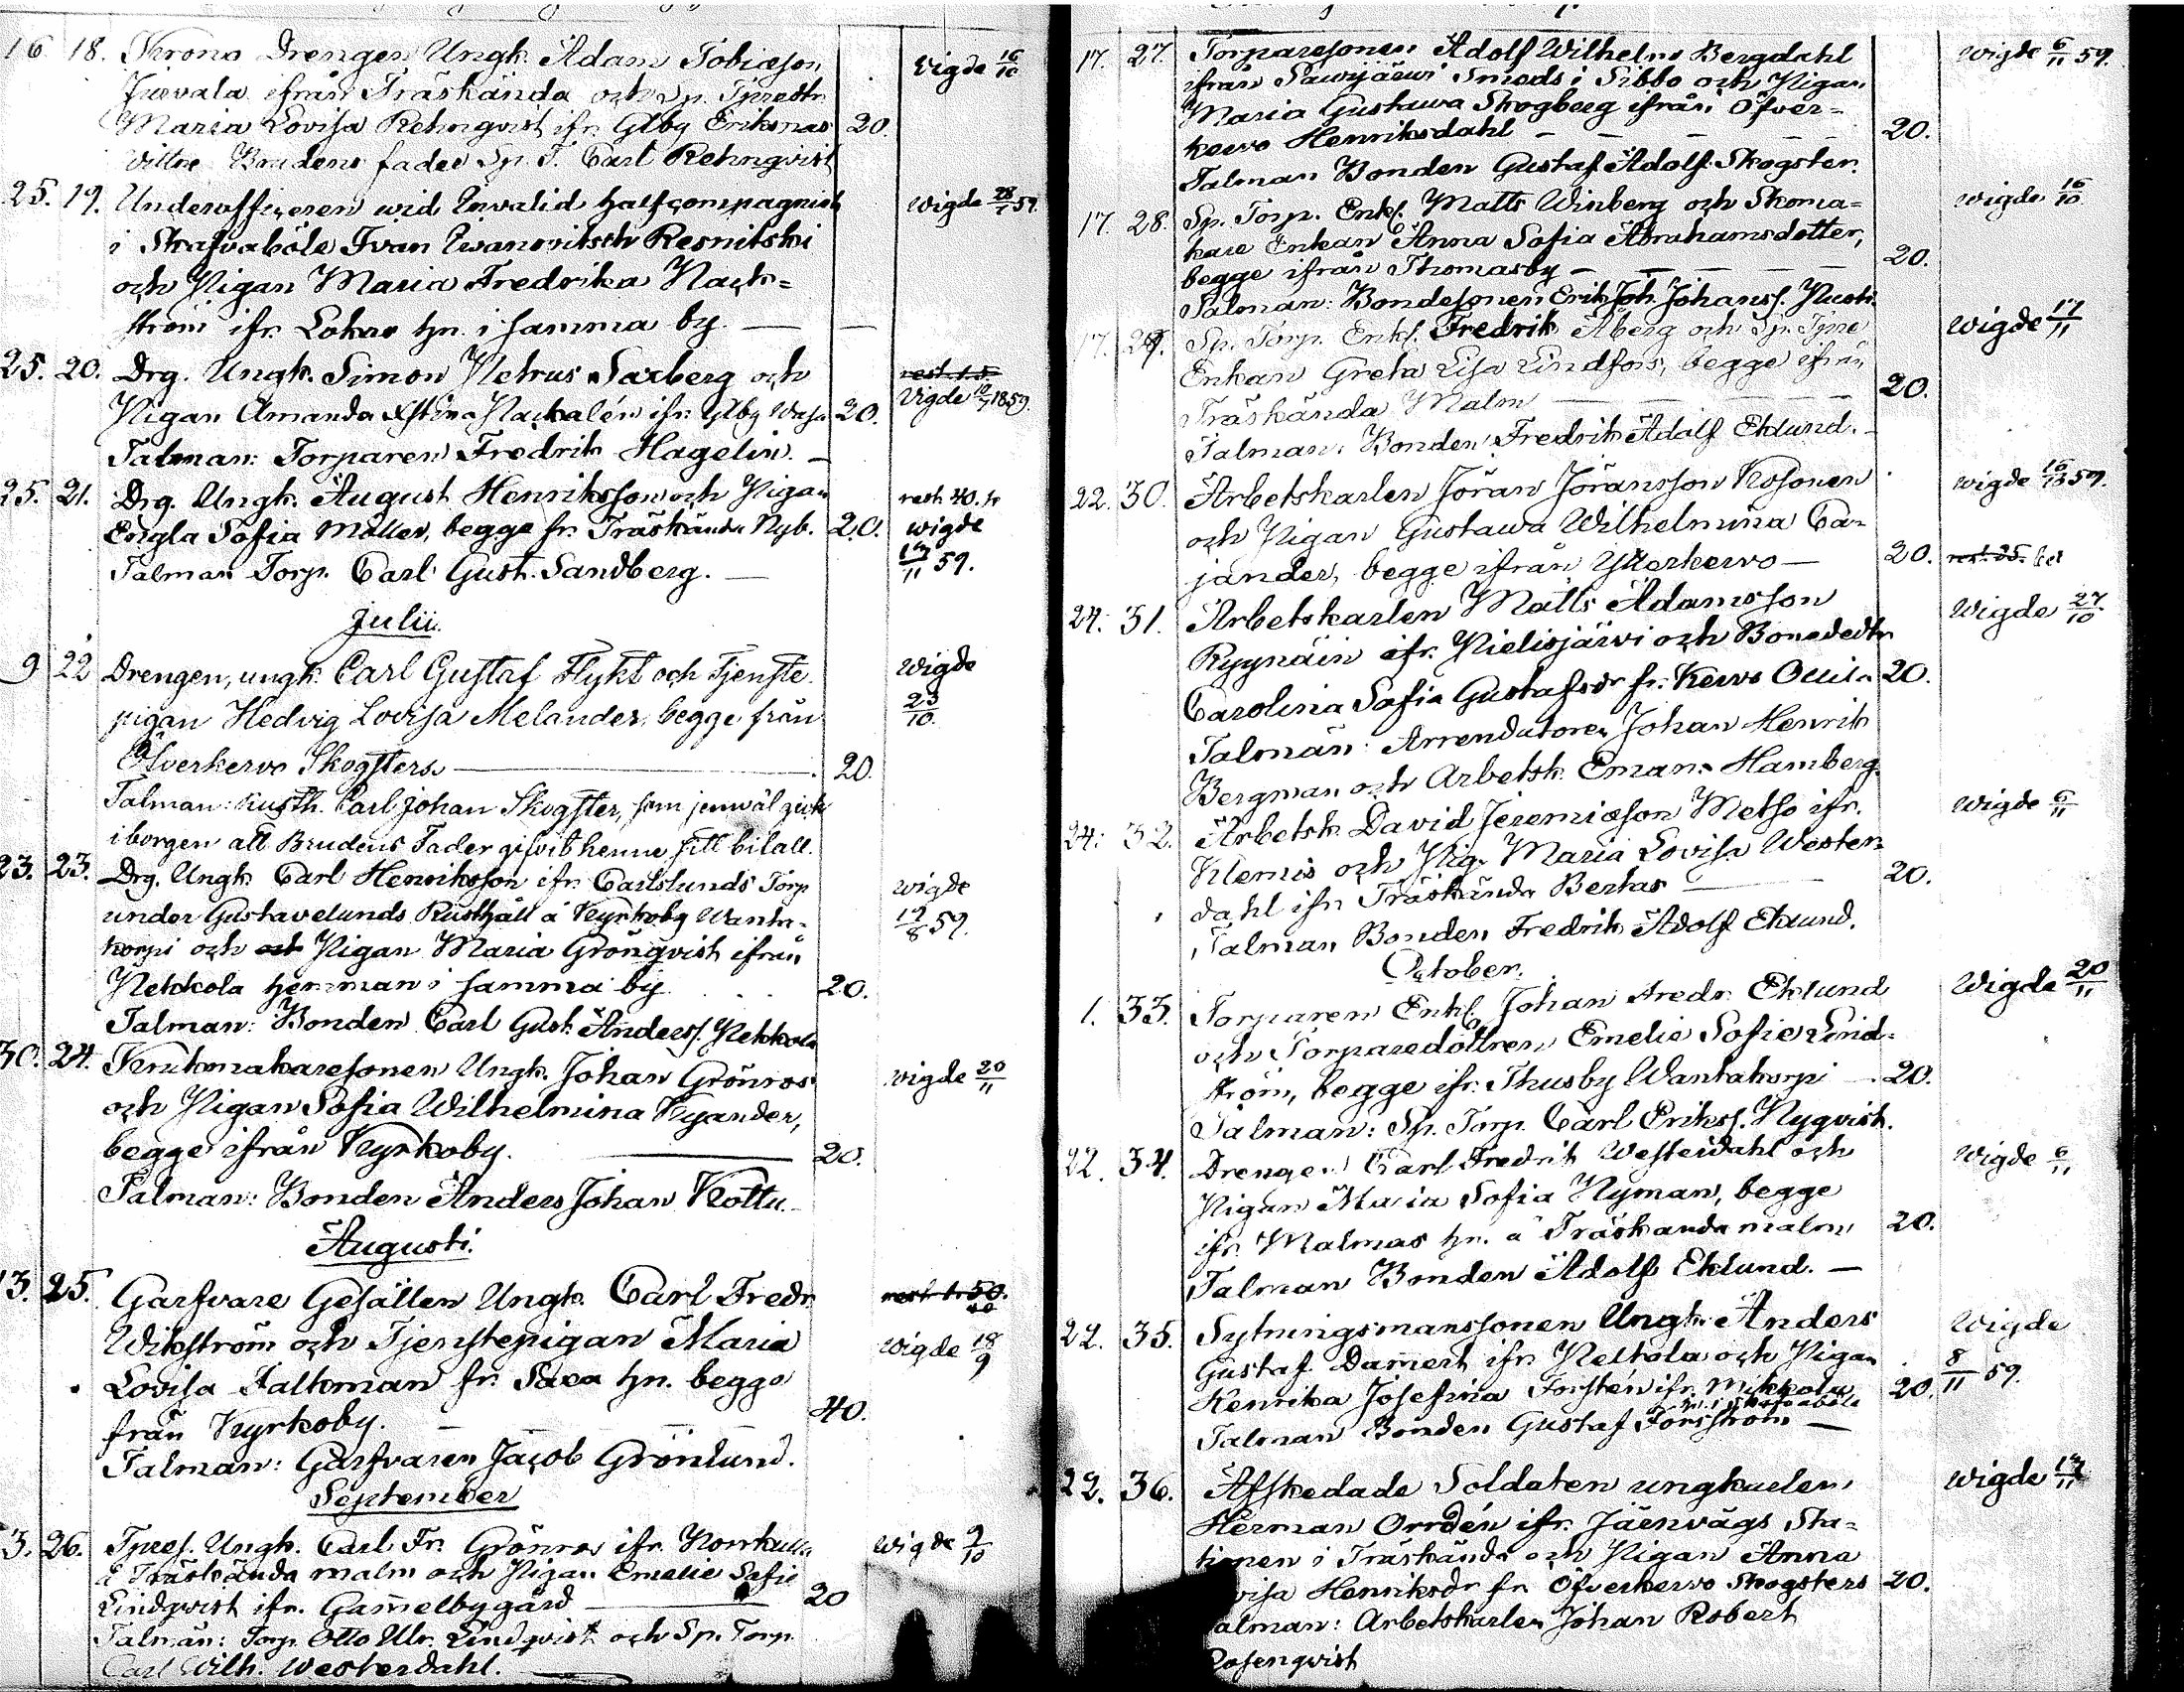 16 18. Krono Drengen Ungk. Adam Tobiæson wigde 16/10
Juvala ifrån Träskända och Sp. Tjrestr.
Maria Lovisa Rehnqvist ifr. Glby Eriksnäs 20.
Vittne Brudens fader Sp. T. Carl Rehnqvist
25. 19. Underofficeren wid Invalid halfcompagniet wigde 59.
i Skafvaböle Ivan Iwanovitsch Resnitski
och Pigan Maria Fredrika Nack=
ström ifr. Lokars hn. i samma by. —
25. 20. Drg. Ungk. Simon Petrus Saxberg och rest 15
Pigan Amanda Xstina Packalén ifr. Glby 20. Vigde 1859.
Talman: Torparen Fredrik Hagelin. —
25. 21. Drg. Ungk. August Henriksson och Pigan rest. 40. k
Engla Sofia Möller, begge fr. Träskända Nyb. 20. wigde
Talman Torp. Carl Gust. Sandberg. — 59.
Julii.
9 22 Drengen, ungk. Carl Gustaf Flykt och Tjenste wigde
pigan Hedvig Lovisa Melander, begge från 23/10.
Öfverkervo Skogsters — 20.
Talman: Rusth. Carl Johan Skogster, som jemwäl gick
i borgen att Brudens Fader gifvit henne sitt bifall.
23. 23. Drg. Ungk. Carl Henriksson ifr. Carlslunds Torp wigde
under Gustavelunds Rusthåll å Kyrkoby Wanta- 59.
korpi och och Pigan Maria Grönqvist ifrån
Pekkola hemman i samma by. 20.
Talman: Bonden Carl Gust. Anderss. Pekkola
30. 24. Krukmakaresonen Ungk. Johan Grönros wigde 20/11
och Pigan Sofia Wilhelmina Kyander,
begge ifrån Kyrkoby. — 20.
Talman: Bonden Anders Johan Kottu. —
Augusti.
13. 25. Garfvare Gesällen Ungk. Carl Fredr. rest. 1.50.
Wikström och Tjenstepigan Maria wigde 18/9
Lovisa Saltman fr. Saxa hn. begge
från Kyrkoby. — 40.
Talman: Garfvaren Jacob Grönlund.
September
3. 26. Tjres. Ungk. Carl Fr. Grönros ifr. Norrkulla wigde 9/10
å Träskända malm och Pigan Emelie Sofie
Lindqvist ifr. Gamelbygård — 20
Talmän: Torp. Otto Ulr. Lindqvist och Sp. Torp.
Carl Wilh. Westerdahl. —
17. 27. Torparesonen Adolf Wilhelm Bergdahl wigde 6/11 59.
ifrån Savijärwi Smeds i Sibbo och Pigan
Maria Gustawa Skogberg ifrån Öfver=
kervo Henriksdahl — 20.
Talman Bonden Gustaf Adolf Skogster.
17. 28. Sp. Torp. Enkl. Matts Winberg och Skoma= wigde 16/10
kare Enkan Anna Sofia Abrahamsdotter,
begge ifrån Thomasby — 20.
Talman: Bondesonen Erik Joh. Johanss. Husti.
17. 29. Sp. Torp. Enkl. Fredrik Åberg och Sp. Tjrne wigde 17/11
Enkan Greta Lisa Lindfors, begge ifrån
Träskända Malm — 20.
Talman: Bonden Fredrik Adolf Eklund. —
22. 30. Arbetskarlen Jöran Jöransson Kosonen wigde 59.
och Pigan Gustawa Wilhelmina Ca-
jander, begge ifrån Ytterkervo — 20. rest. 25.
24. 31. Arbetskarlen Matts Adamsson wigde 27/10
Ryynäin ifr. Pielisjärvi och Bonededtr.
Carolina Sofia Gustafsdr fr. Kervo Ouila 20.
Talmän: Arrendatoren Johan Henrik
Bergman och Arbetsk. Eman. Hamberg.
24. 32. Arbetsk. David Jeremiæson Metso ifr. wigde 6/11
Klemis och Pig. Maria Lovisa Wester-
dahl ifr. Träskända Bertas — 20.
Talman Bonden Fredrik Adolf Eklund.
October.
1. 33. Torparen Enkl. Johan Fredr. Eklund Wigde 20/11
och Torparedottren Emelie Sofie Lind-
ström, begge ifr. Thusby Wantakorpi — 20.
Talman: Sp. Torp. Carl Erikss. Nyqvist.
22. 34. Drengen Carl Fredrik Westerdahl och wigde 6/11
Pigan Maria Sofia Nyman, begge
ifr. Malmas hn. å Träskanda malm 20.
Talman Bonden Adolf Eklund. —
22. 35. Sytningsmanssonen Ungk. Anders Wigde
Gustaf Damert ifr. Peltola och Pigan 8/11 59.
Henrika Josefina Forstén ifr. Mikkola 20.
hn. i Skafvaböle
Talman Bonden Gustaf Forsström —
22. 36. Afskedade Soldaten ungkarlen wigde
Herman Orrdén ifr. Järnvägs Sta=
tionen i Träskända och Pigan Anna
visa Henriksdr fr. Öfverkervo Skogsters 20.
alman: Arbetskarlen Johan Robert
Rosenqvist